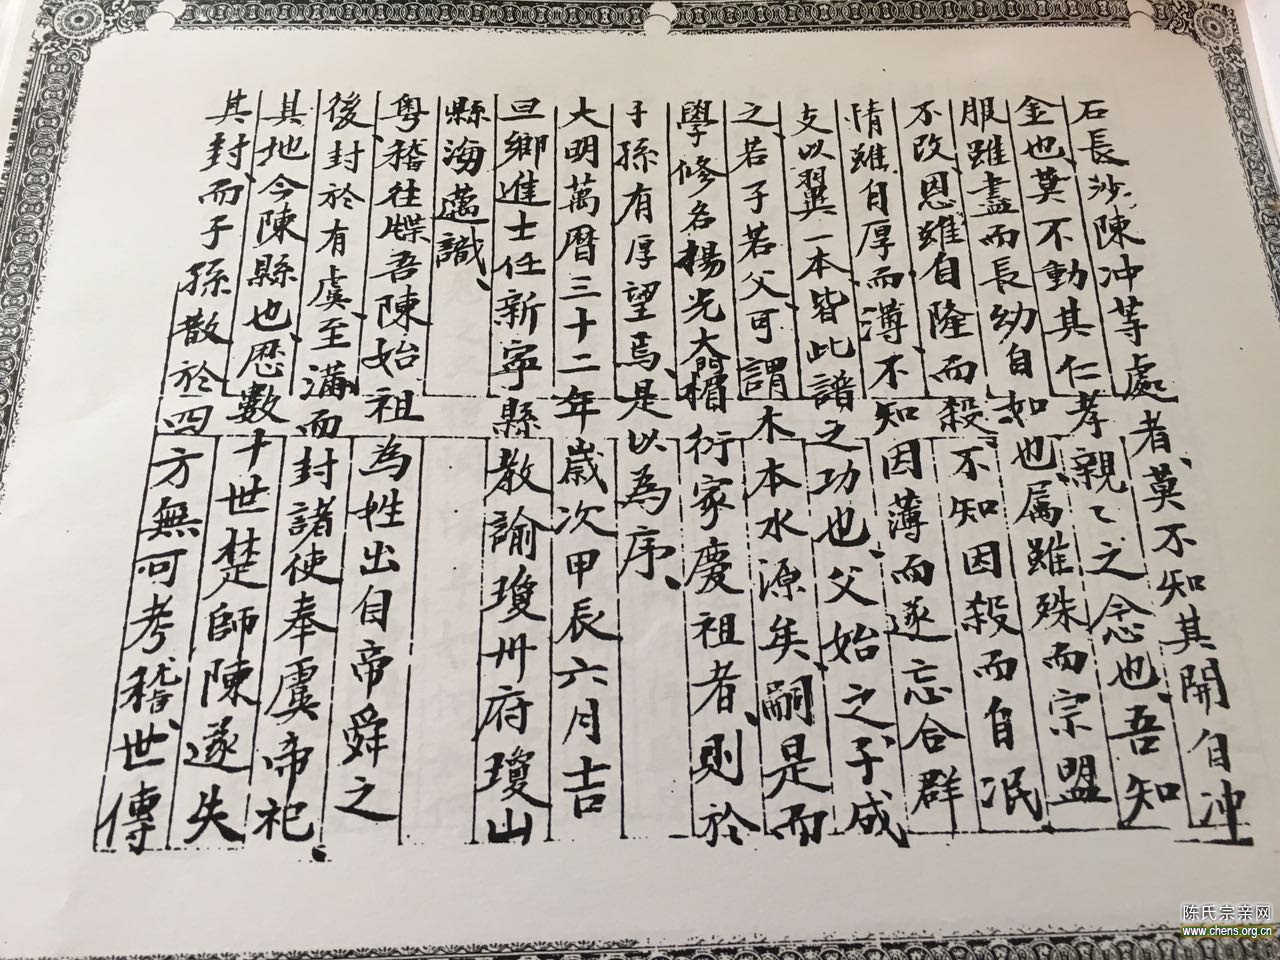 石長沙陳冲等處者、莫不知其開自冲
金也、莫不動其仁孝親々之念也、吾知
服雖盡而長幼自如也、属雖殊而宗盟
不改、恩雖自隆而殺、不知因殺而自泯
情雖自厚而薄、不知因薄而遂忘合群
支以翼一本皆此譜之功也、父始之、子成
之、若子若父、可謂木本水源矣、嗣是而
學修名揚光大門楣衍家慶祖者、則於
子孫有厚望焉、是以為序、
大明萬曆三十二年歲次甲辰六月吉
旦鄉進士任新寧縣教諭瓊州府瓊山
縣海邁識、
粵稽往牒吾陳始祖為姓出自帝舜之
後、封於有虞、至滿而封諸使奉虞帝祀、
其地今陳縣也、歷數十世楚師陳遂失
其封、而子孫散於四方無可考稽、世傳
陈氏宗亲网
www.chens.org.cn